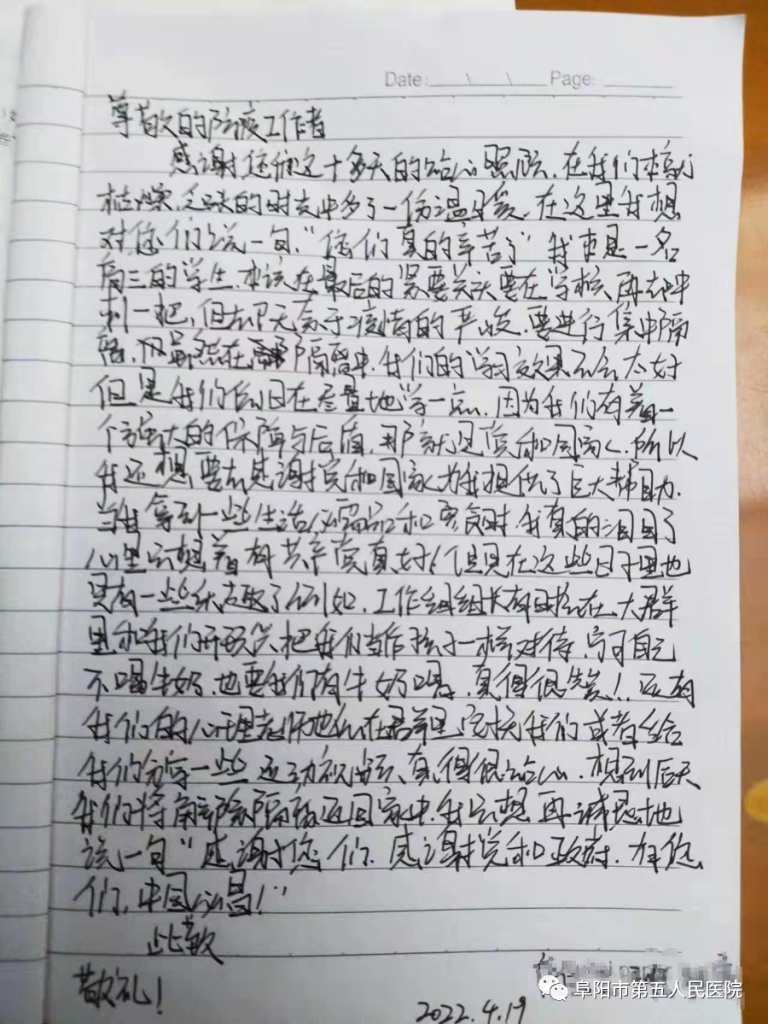 Date: \ \ Page:
尊敬的防疫工作者
感谢您们这十多天的贴心照顾，在我们本就
枯燥、乏味的时光中多了一份温暖，在这里我想
对您们说一句，“您们真的辛苦了”我也是一名
高三的学生，本该在最后的紧要关头要在学校再冲
刺一把，但却无奈于疫情的严峻，要进行集中隔
离，虽然在隔离中，我们的学习效果不会太好
但是我们依旧在尽量地学一点，因为我们有着一
个强大的保障与后盾，那就是党和国家，所以
我还想要去感谢党和国家为我提供了巨大帮助，
当我拿到一些生活必需品和零食时，我真的泪目了
心里只想着有共产党真好！但是在这些日子里也
是有一些乐趣了，例如，工作组组长都会在大群
里和我们开玩笑，把我们当作孩子一样对待，宁可自己
不喝牛奶，也要我们有牛奶喝，真得很好笑！还有
我们的心理老师也会在群里安抚我们或者给
我们分享一些运动视频，真得很贴心，想到后天
我们将解除隔离返回家中，我只想再诚恳地
说一句“感谢您们，感谢党和政府，有您
们，中国必昌！”
此致
敬礼！
2022.4.19
阜阳市第五人民医院